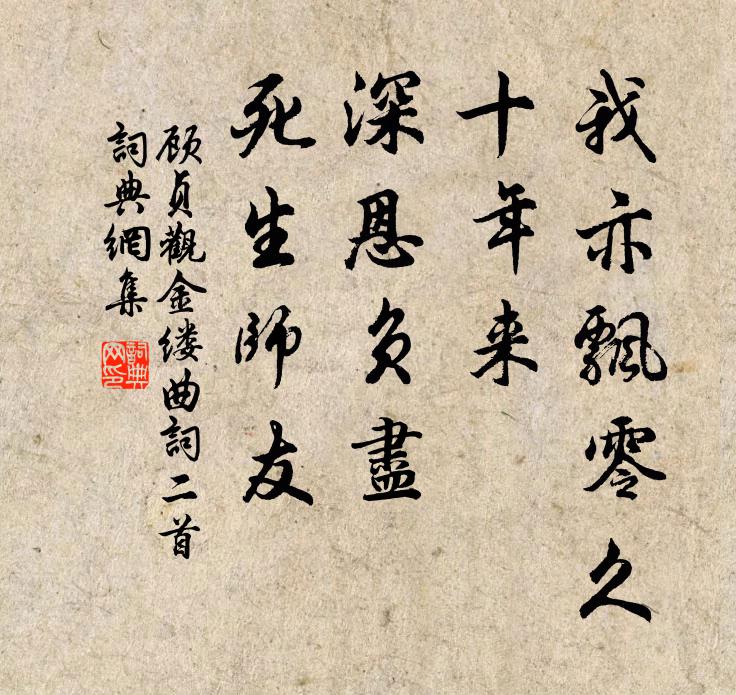 我亦飄零久
十年来
深恩负盡
死生師友
顾贞觀金缕曲詞二首
詞典網集
詞典网印